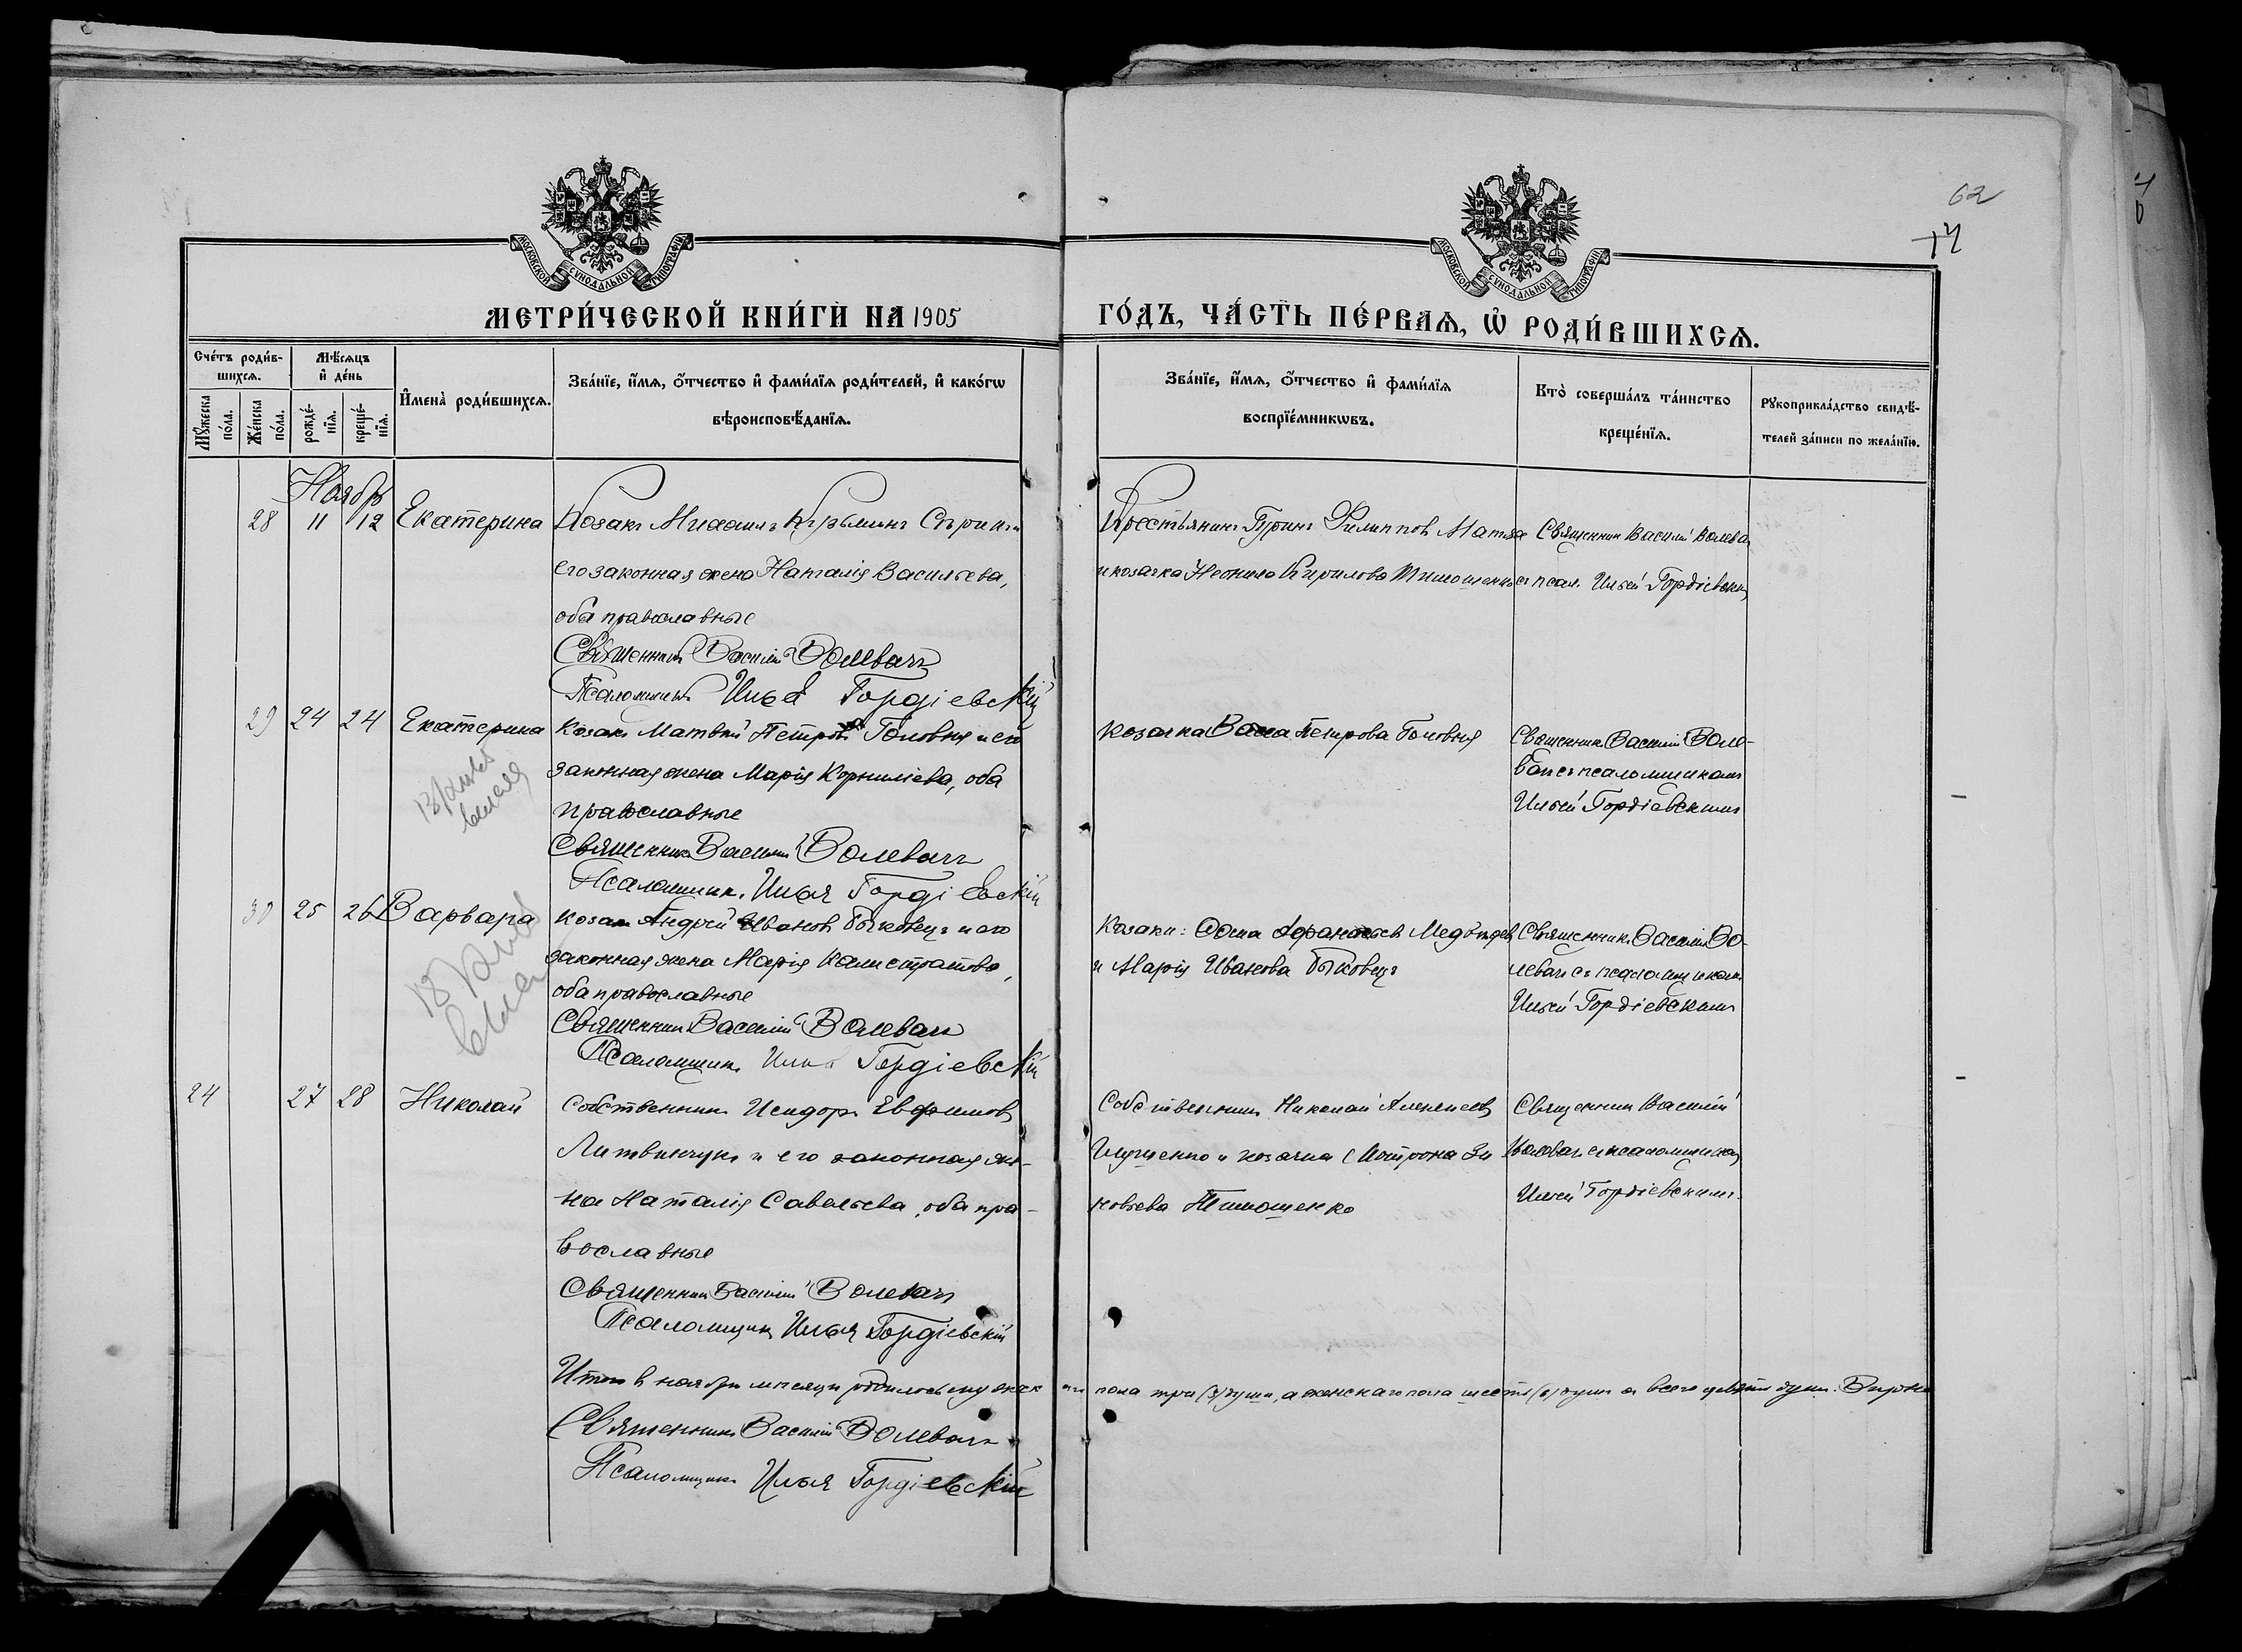 62
14
МОСКОВСКОЙ СѴНОДАЛЬНОЙ ТИПОГРАФІИ
МОСКОВСКОЙ СѴНОДАЛЬНОЙ ТИПОГРАФІИ
МЕТРИ́ЧЕСКОЙ КНИ́ГИ НА 1905
ГО́ДЪ, ЧА́СТЬ ПЕ́РВАѦ, Ѡ РОДИ́ВШИХСѦ.
Сче́тъ роди́в-
шихсѧ.
Мꙋжеска по́ла.
Же́нска по́ла.
Мѣ́сѧцъ
и҆ де́нь
рожде́-
нїѧ.
креще́-
нїѧ.
И҆мена̀ роди́вшихсѧ.
Зва́нїе, и҆́мѧ, ѻ҆́тчество и҆ фами́лїѧ роди́телей, и҆ како́гѡ
вѣроисповѣ́данїѧ.
Зва́нїе, и҆́мѧ, ѻ҆́тчество и҆ фами́лїѧ
воспрїе́мникѡвъ.
Кто̀ соверша́лъ та́инство
креще́нїѧ.
Рꙋкоприкла́дство свидѣ́-
телей за́писи по жела́нїю.
Ноябрь
28 11 12 Екатерина
Козакъ Михаилъ Кузьминъ
его законная жена Наталія Васильева,
оба православные
Священникъ Василій Волевачъ
Псаломщикъ Илья Гордіевскій
Крестьянинъ Гурій Филипповъ Матяха
и козачка Неонила Кирилова Тимошенко
Священник Василій Волевач
съ псал. Ильей Гордіевскимъ
29 24 24 Екатерина
Козакъ Матвѣй Петровъ Головня и его
законная жена Марія Корниліева, оба
православные
Священникъ Василій Волевачъ
Псаломщикъ Илья Гордіевскій
Козачка Васса Петрова Головня
Священникъ Василій Воле-
вачъ съ псаломщикомъ
Ильей Гордіевскимъ
30 25 26 Варвара
Козакъ Андрей Ивановъ Быковецъ и его
законная жена Марія Калистратова,
оба православные
Священникъ Василій Волевачъ
Псаломщикъ Илья Гордіевскій
Козаки: Ѳома Афанасьевъ Медвѣдевъ
и Марія Иванова Быковецъ
Священникъ Василій Во-
левачъ съ псаломщикомъ
Ильей Гордіевскимъ
24 27 28 Николай
Собственникъ Исидоръ Евфимовъ
Литвинчукъ и его законная же-
на Наталія Савельева, оба пра-
вославные
Священникъ Василій Волевачъ
Псаломщикъ Илья Гордіевскій
Собственникъ Николай Алексѣевъ
Глущенко и козачка Матрона Зи
новьева Тимошенко
Священникъ Василій
Волевачъ съ псаломщикомъ
Ильей Гордіевскимъ
Итого в ноябрѣ мѣсяцѣ родилось мужск аго пола три (3) души, а женскаго пола шесть (6) душъ а всего девять душъ. Вѣрно
Священникъ Василій Волевачъ
Псаломщикъ Илья Гордіевскій